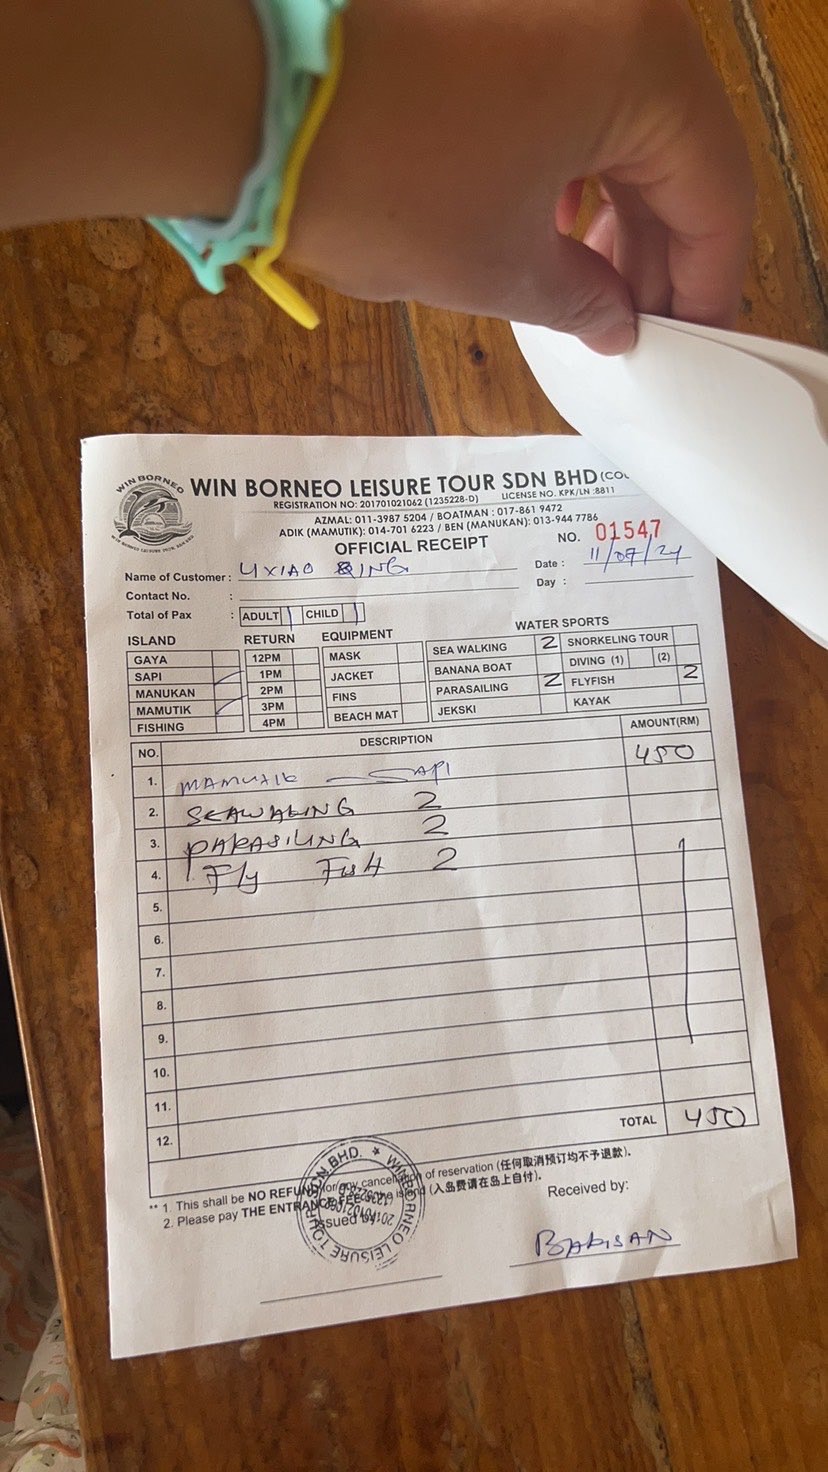 WIN BORNEO
WIN BORNEO LEISURE TOUR SDN BHD (CO
REGISTRATION NO: 201701021062 (1235228-D) LICENSE NO. KPK/LN :8811
AZMAL: 011-3987 5204 / BOATMAN : 017-861 9472
ADIK (MAMUTIK): 014-701 6223 / BEN (MANUKAN): 013-944 7786
OFFICIAL RECEIPT NO. 01547
Name of Customer : YXIAO QING Date : 11/07/24
Contact No. : Day :
Total of Pax : ADULT CHILD
WATER SPORTS
ISLAND RETURN EQUIPMENT
GAYA 12PM MASK SEA WALKING 2 SNORKELING TOUR
SAPI 1PM JACKET BANANA BOAT DIVING (1) (2)
MANUKAN 2PM FINS PARASAILING 2 FLYFISH 2
MAMUTIK 3PM BEACH MAT JEKSKI KAYAK
FISHING 4PM
NO. DESCRIPTION AMOUNT(RM)
1. MAMUTIK SAPI 450
2. SEAWALING 2
3. PARASILING 2
4. Fly Fish 2
5.
6.
7.
8.
9.
10.
11.
12. TOTAL 450
** 1. This shall be NO REFUND for any cancellation of reservation (任何取消预订均不予退款).
2. Please pay THE ENTRANCE FEE (入岛费请在岛上自付).
Issued by Received by:
WINBORNEO LEISURE TOUR SDN BHD.